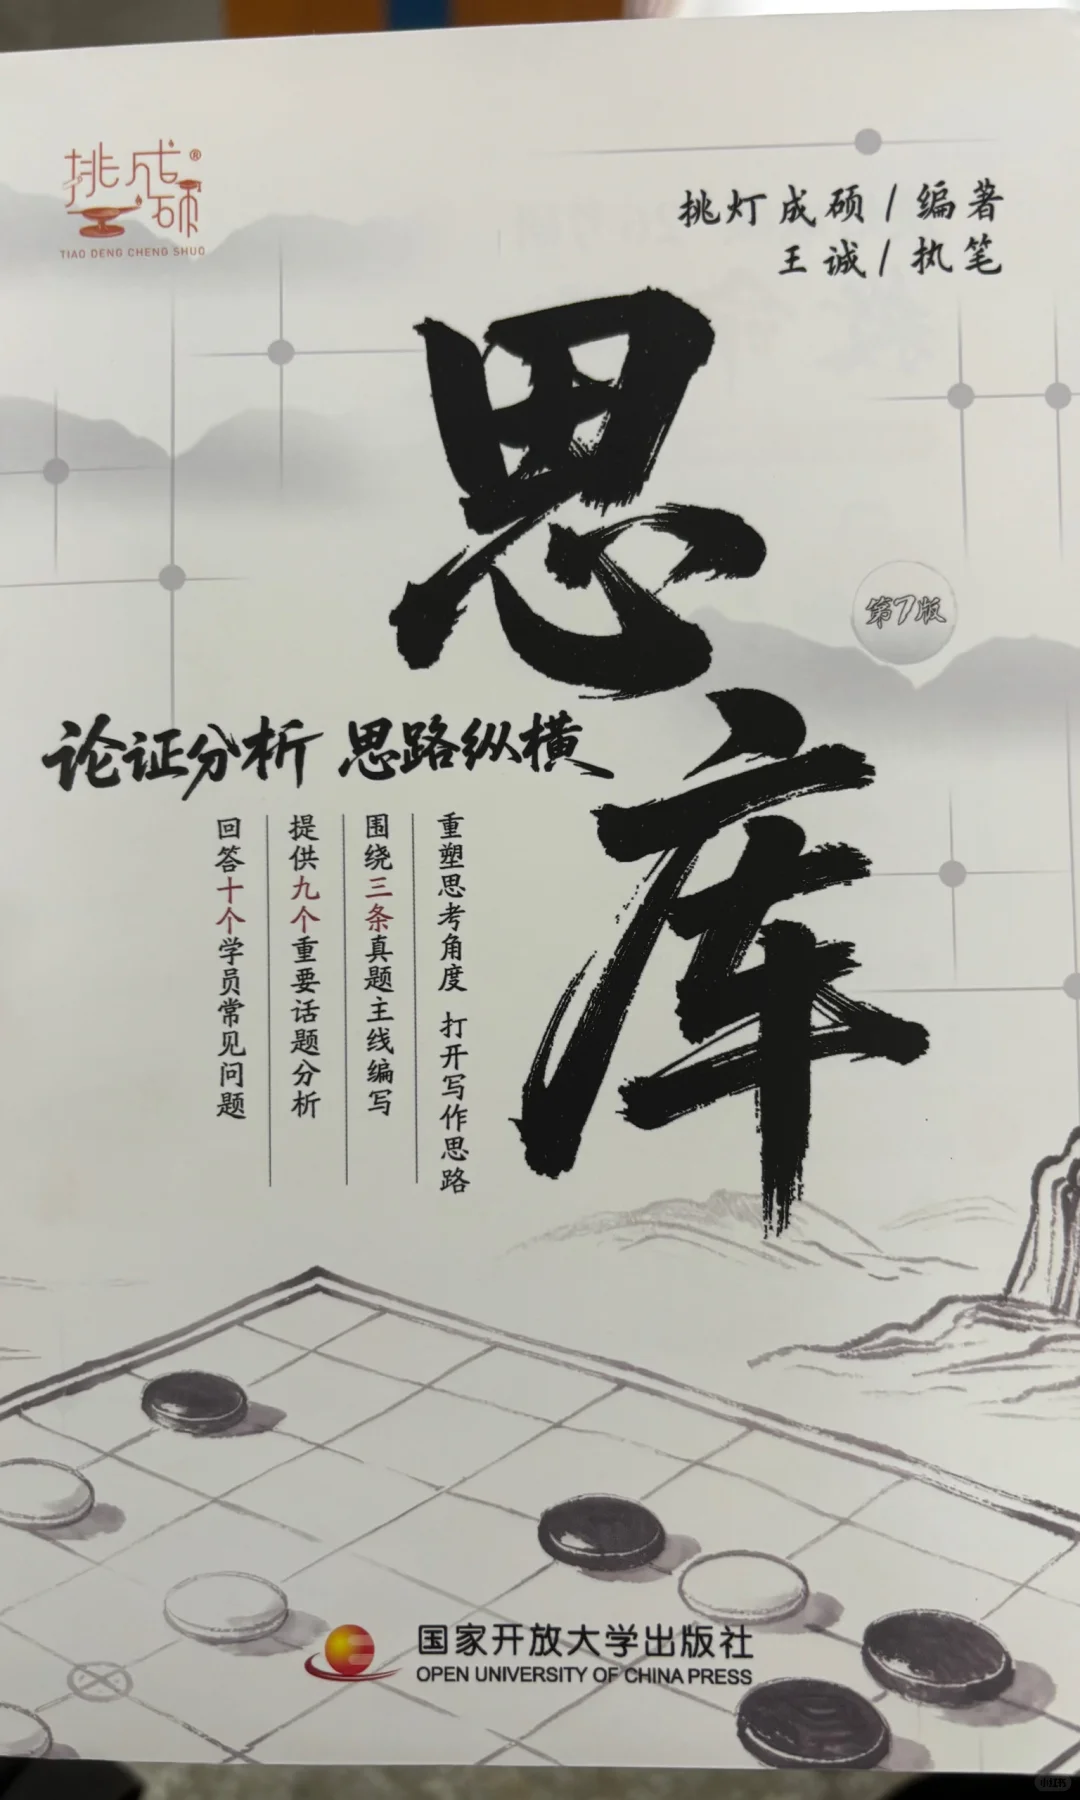 挑灯成硕®
TIAO DENG CHENG SHUO
挑灯成硕/编著
王诚/执笔
思库
第7版
论证分析 思路纵横
重塑思考角度 打开写作思路
围绕三条真题主线编写
提供九个重要话题分析
回答十个学员常见问题
国家开放大学出版社
OPEN UNIVERSITY OF CHINA PRESS
小红书